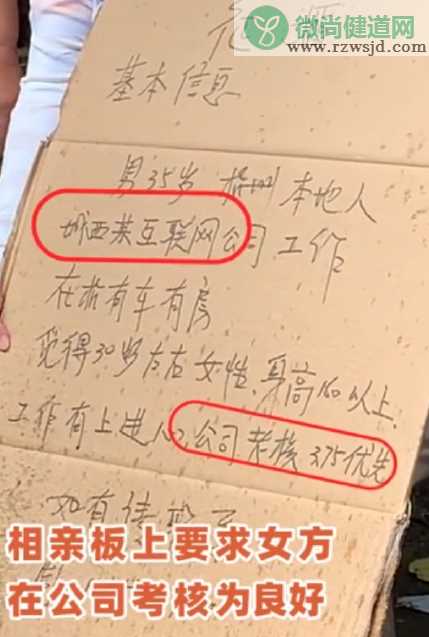 微尚健道网
www.rzwsjd.com
基本信息
男35岁 杭州本地人
城西某互联网公司工作
在杭有车有房
觅得30岁左右女性,身高160以上,
工作有上进心,公司考核3.75优先
如有
相亲板上要求女方
在公司考核为良好